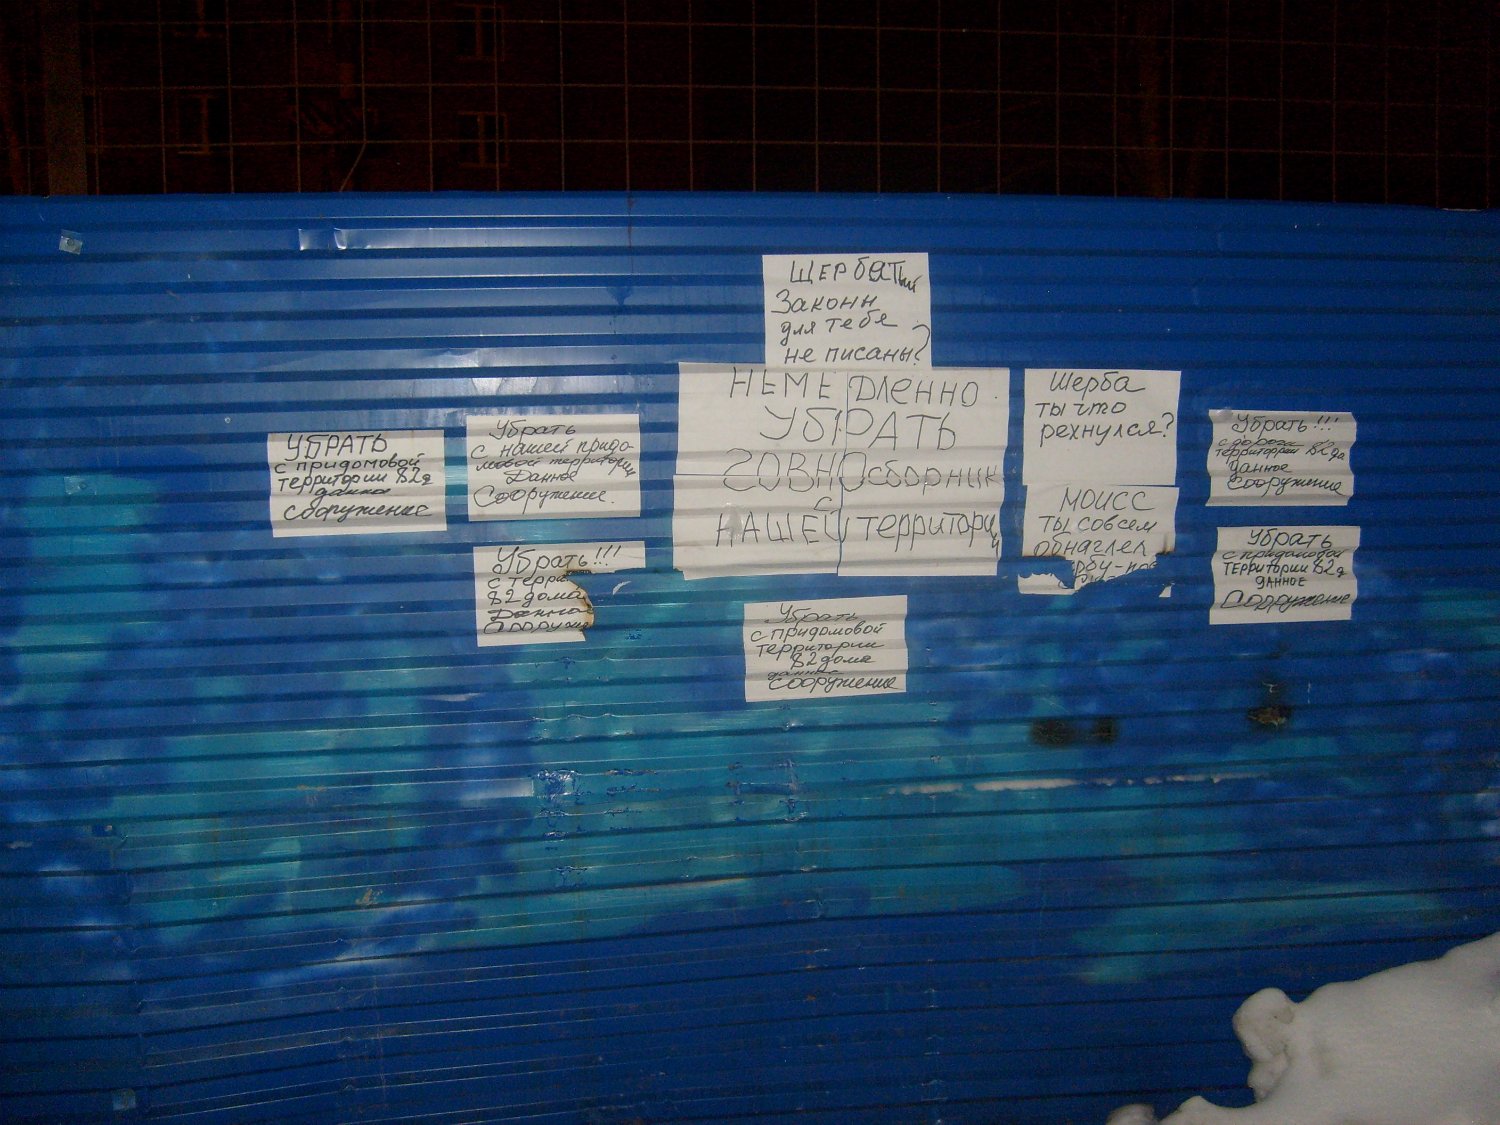 ЩЕРБАТЫЙ
Законы
для тебя
не писаны?
НЕМЕДЛЕННО
УБИРАТЬ
ГОВНОсборник
С
НАШЕЙ территории
Щерба
ты что
рехнулся?
МОИСС
ТЫ СОВСЕМ
обнаглел
УБРАТЬ
с придомовой
территории 82д
данное
сооружение
Убрать
с нашей придо-
мовой территории
Данное
Сооружение.
Убрать!!!
с терри
82 дома
Данное
Сооруже
Убрать
с придомовой
территории
82 дома
данное
сооружение
Убрать!!!
с дороги
территории 82 да
Данное
Сооружение
Убрать
с придомовой
территории 82д
ДАННОЕ
Сооружение